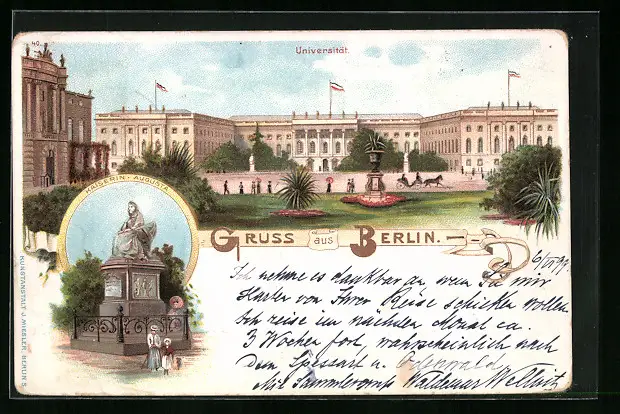 40.
Universität.
KAISERIN - AUGUSTA
GRUSS aus BERLIN.
6/VI 99.
Ich nehme es dankbar an, wenn Sie mir
Karten von Ihrer Reise schicken wollen.
Ich reise im nächsten Monat ca.
3 Wochen fort, wahrscheinlich nach
dem Spessart u. Odenwald.
Mit Sammlergruß Waldemar
KUNSTANSTALT J. MIESLER, BERLIN S.